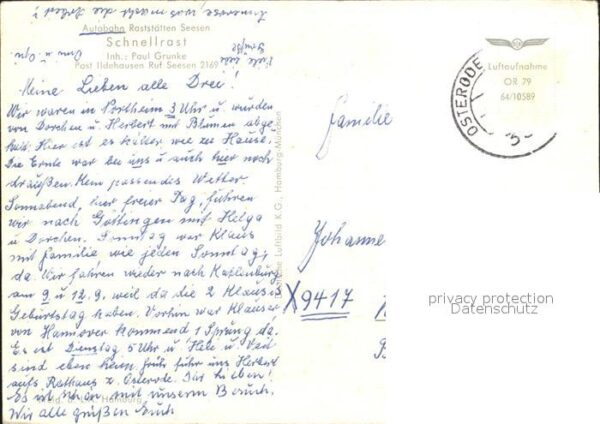 Innerose, was macht die Arbeit?
Autobahn Raststätten Seesen
Schnellrast
Inh.: Paul Grunke
Post Ildehausen Ruf Seesen 2169
Viele liebe
Grüße
Oma u. Opa
Meine Lieben alle Drei!
Wir waren in Northeim 3 Uhr u. wurden
von Dorchen u. Herbert mit Blumen abge
holt. Hier ist es kälter wie zu Hause.
Die Ernte war bei uns u. auch hier noch
draußen. Kein passendes Wetter.
Sonnabend, hier freier Tag, fuhren
wir nach Göttingen mit Helga
u. Dorchen. Sonntag war Klaus
mit Familie wie jeden Sonntag,
da. Wir fahren wieder nach Katlenburg
am 9 u 12.9. weil da die 2 Klauser
Geburtstag haben. Vorhin war Klauser
von Hannover kommend 1 Sprung da.
Es ist Dienstag 5 Uhr u. Hele u.
sind eben heim. früh fuhr uns Herbert
aufs Rathaus z. Osterode.
Es ist schon mit unserm Besuch.
Wir alle grüßen Euch
Familie
Johanne
X9417
Deutsche Luftbild K.G., Hamburg
Luftaufnahme
OR 79
64/10589
OSTERODE
privacy protection
Datenschutz